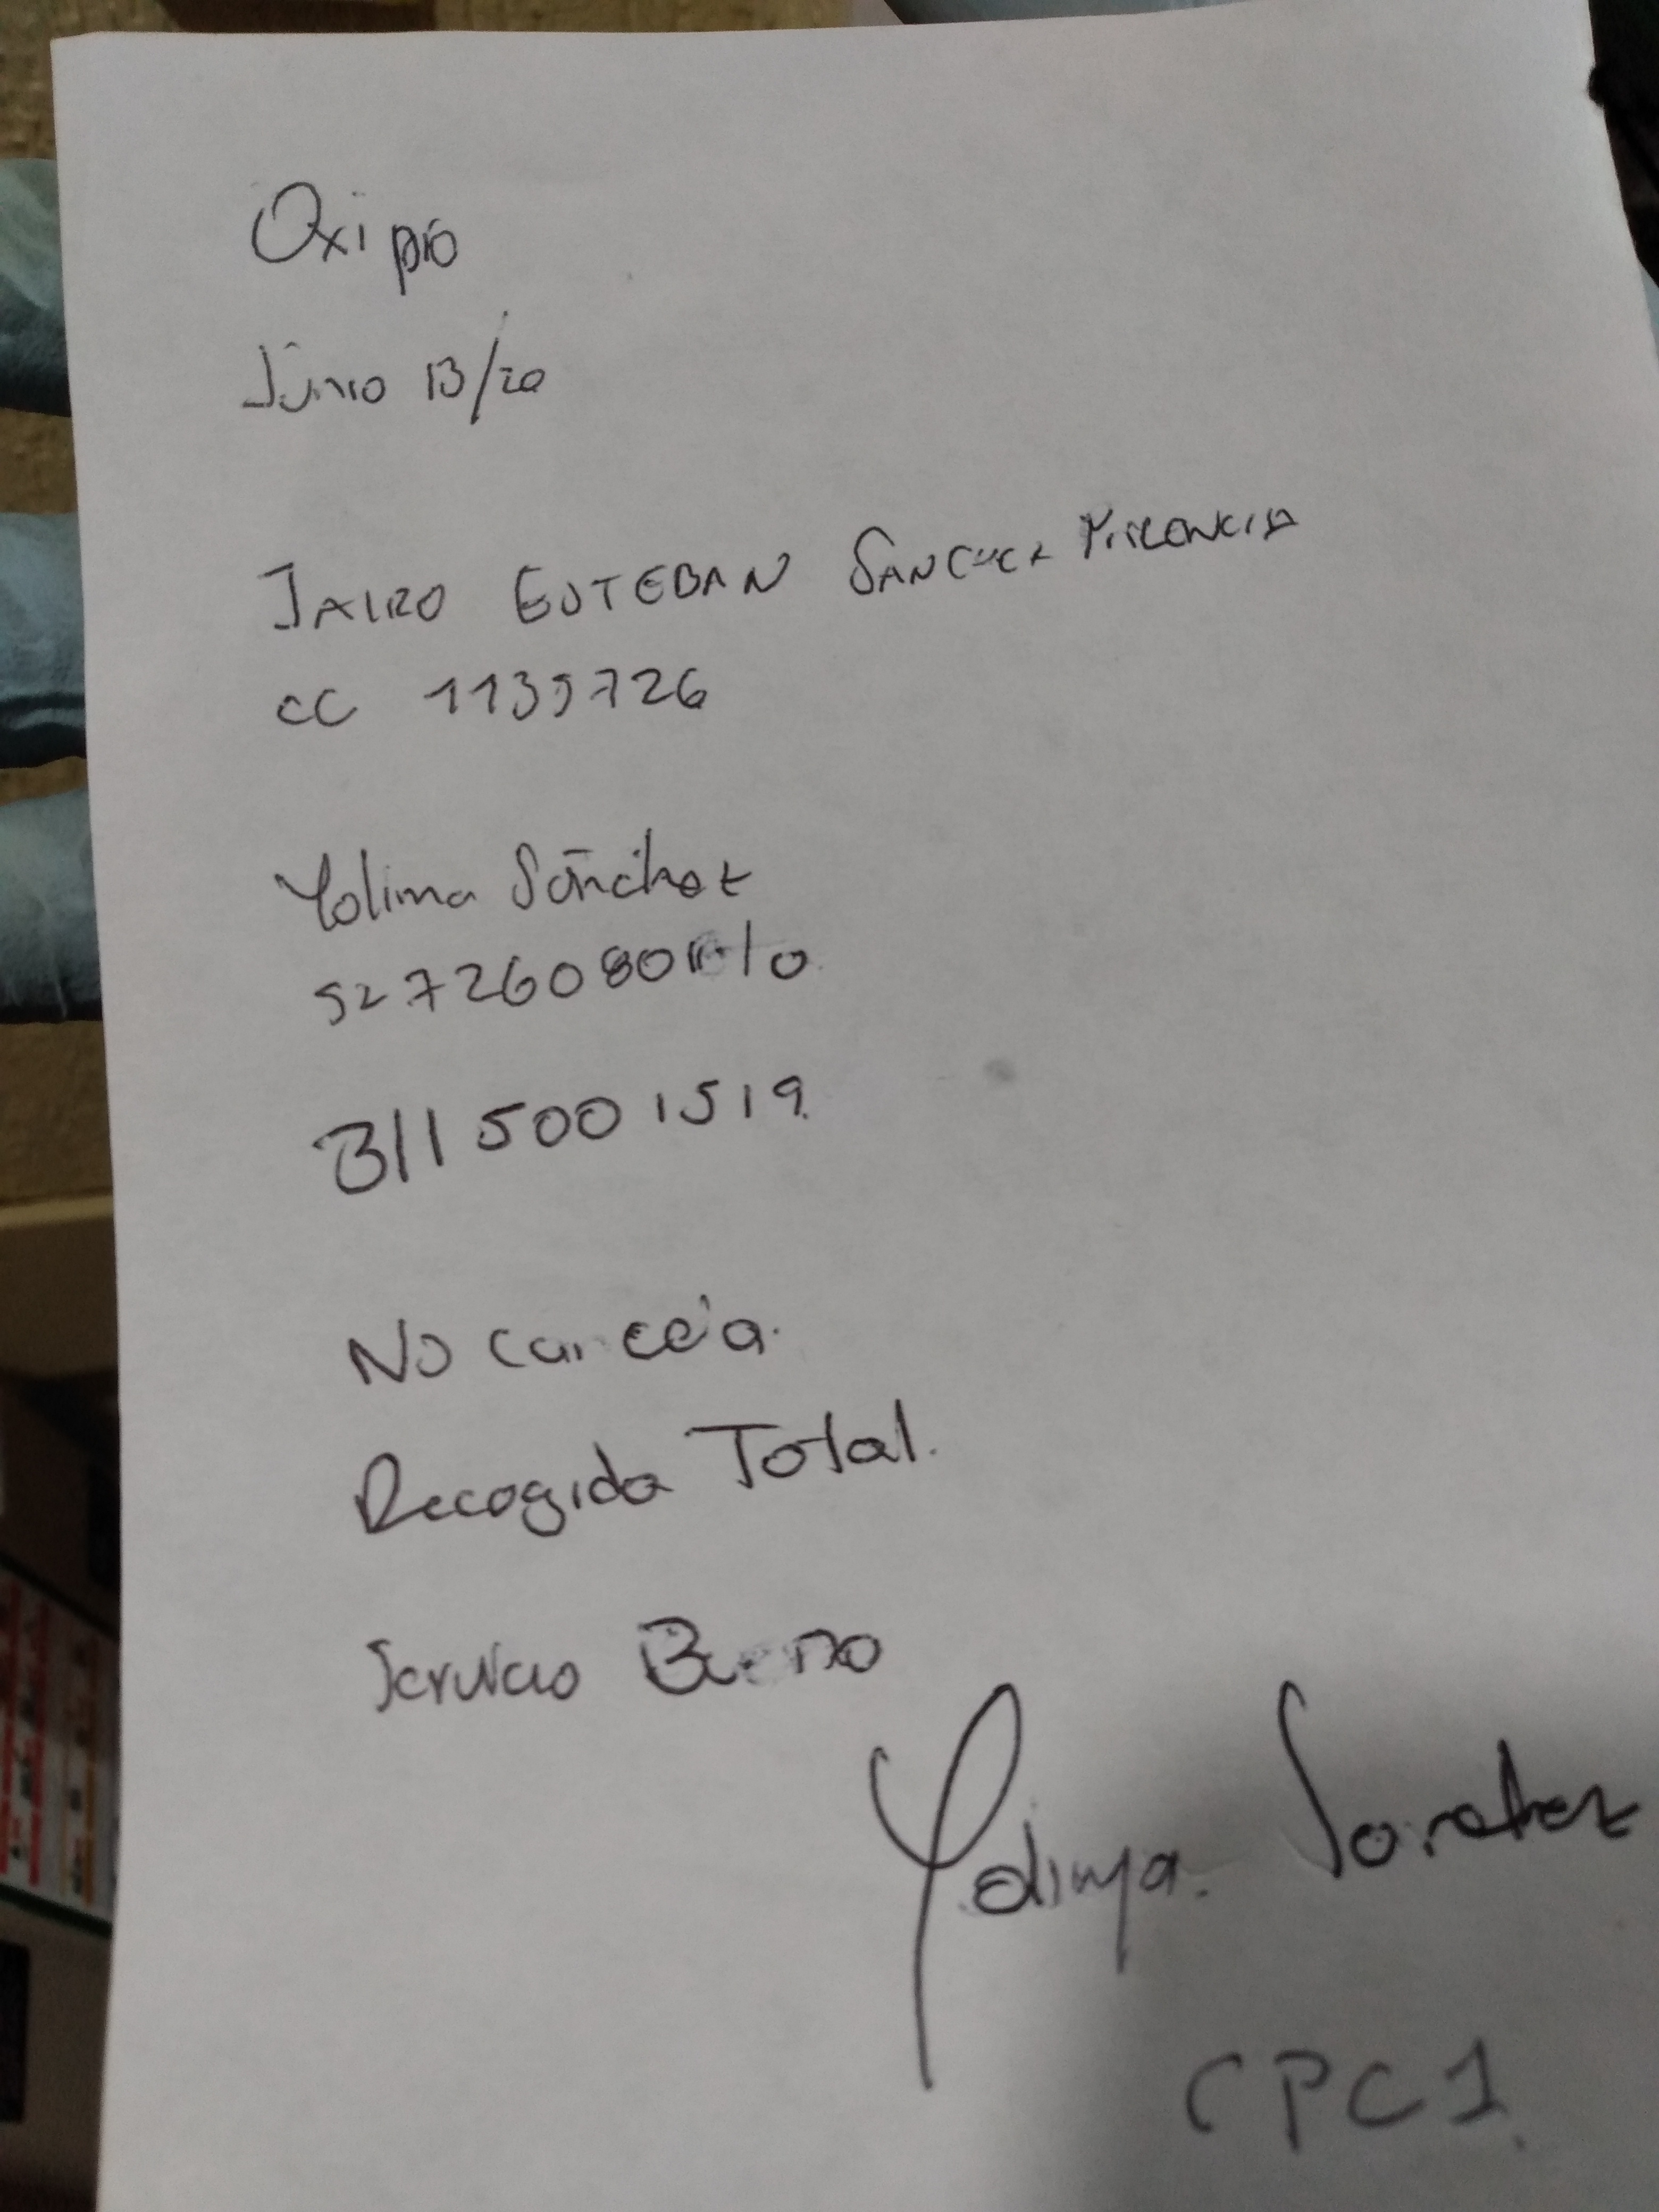 Oxi pro
Junio 13/20
JAIRO ESTEBAN SANCHEZ
CC 1139726
Yolima Sánchez
52726080
311 500 1519
No cancela.
Recogida Total.
Servicio Bueno
Yolima. Sanchez
CPC1.